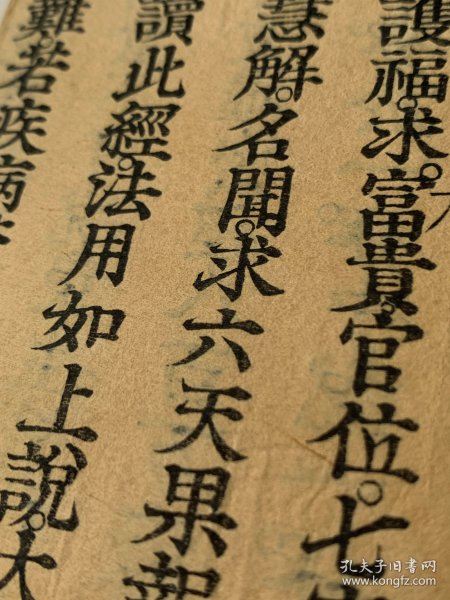 護福。求。富貴。官位。七
慧解。名聞。求六天果報
讀此經。法用如上說。大
難。若疾病
孔夫子旧书网
www.kongfz.com